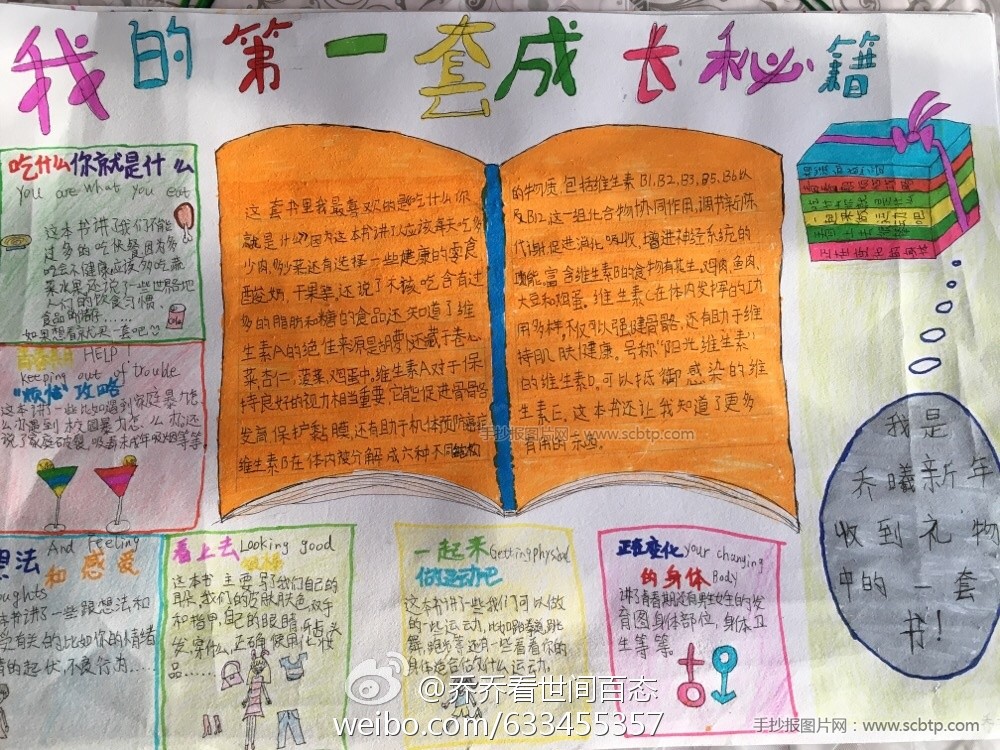 我的第一套成长秘籍
吃什么你就是什么
You are what you eat
这本书讲了我们不能
过多的吃快餐因为多
吃会不健康应该多吃蔬
菜水果还说了一些世界各地
人们的饮食习惯、
食品的储存......
如果想看就买一套吧
HELP!
keeping out of trouble
"烦恼"攻略
这本书讲了一些比如遇到家庭暴力怎
么办遇到校园暴力怎么办还
说了家庭破裂,吸毒未成年吸烟等等
这套书里我最喜欢的是吃什么你
就是什么因为这本书讲了应该每天吃多
少肉多少菜还有选择一些健康的零食
酸奶,干果等,还说了不该吃含有过
多的脂肪和糖的食品还知道了维
生素A的绝佳来源是胡萝卜还藏于卷心
菜杏仁,菠菜,鸡蛋中。维生素A对于保
持良好的视力相当重要,它能促进骨骼
发育保护黏膜,还有助于机体预防癌症
维生素B在体内被分解成六种不同结构
的物质,包括维生素B1、B2、B3、B5、B6以
及B12这一组化合物协同作用,调节新陈
代谢促进消化吸收,增进神经系统的
功能,富含维生素B的食物有花生,鸡肉,鱼肉,
大豆和鸡蛋。维生素C在体内发挥的功
用多样,不仅可以强健骨骼,还有助于维
持肌肤健康。号称"阳光维生素"
的维生素D。可以抵御感染的维
生素E。这本书还让我知道了更多
有用的东西。
我是
乔曦新年
收到礼物
中的一套
书!
想法和感受
And feeling
thoughts
本书讲了一些跟想法和
感受有关的,比如你的情绪
情的起伏,不良行为......
看上去
Looking good
这本书主要写了我们自己的
耳朵,我们的皮肤肤色,双手
和指甲,自己的眼睛
发穿什么,正确使用化妆
品......
一起来
Getting physical
做运动吧
这本书讲了一些我们可以做
的一些运动,比如跆拳道跳
舞,跑步等还有一些看看你的
身体适合做什么运动,
正在变化
your changing
的身体
Body
讲了青春期没有男生女生的发
育图身体部位,身体卫
生等等。
手抄报图片网:www.scbtp.com
@乔乔看世间百态
weibo.com/633455357
手抄报图片网:www.scbtp.com